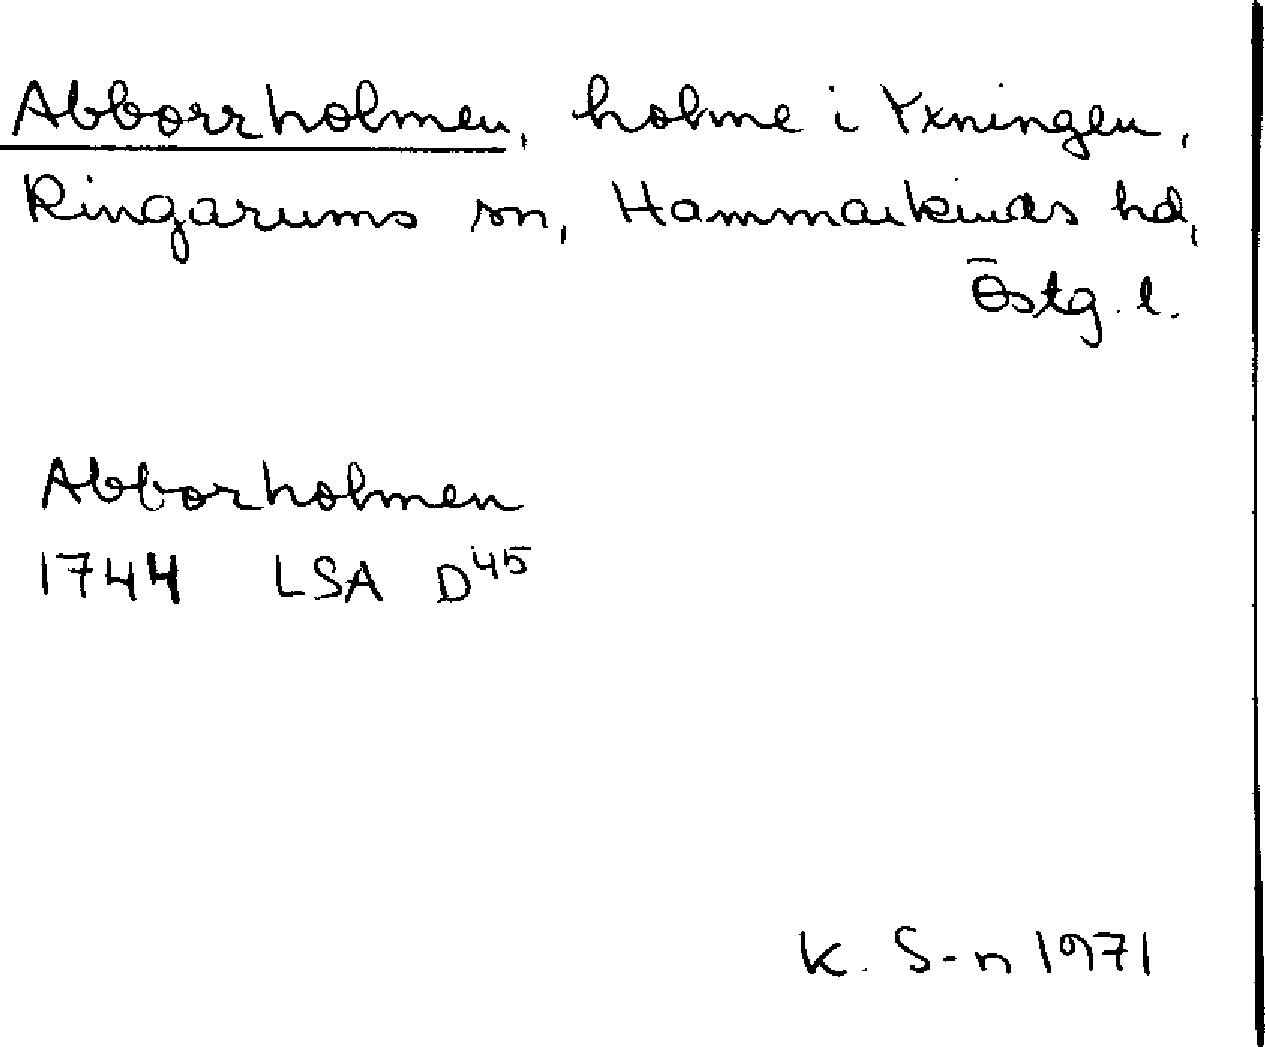 Abborrholmen, holme i Yxningen,
Ringarums sn, Hammarkinds hd,
Östg. l.
Abborholmen
1744 LSA D45
K. S-n 1971